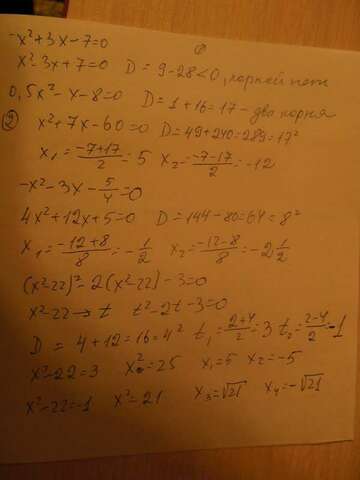 ①
-x²+3x-7=0
x²-3x+7=0 D = 9-28<0, корней нет
0,5x²-x-8=0 D=1+16=17 - два корня
② x²+7x-60=0 D=49+240=289=17²
x₁=(-7+17)/2=5 x₂=(-7-17)/2=-12
-x²-3x-5/4=0
4x²+12x+5=0 D=144-80=64=8²
x₁=(-12+8)/8=-1/2 x₂=(-12-8)/8=-2 1/2
(x²-22)²-2(x²-22)-3=0
x²-22→t t²-2t-3=0
D=4+12=16=4² t₁=(2+4)/2=3 t₂=(2-4)/2=-1
x²-22=3 x²=25 x₁=5 x₂=-5
x²-22=-1 x²=21 x₃=√21 x₄=-√21